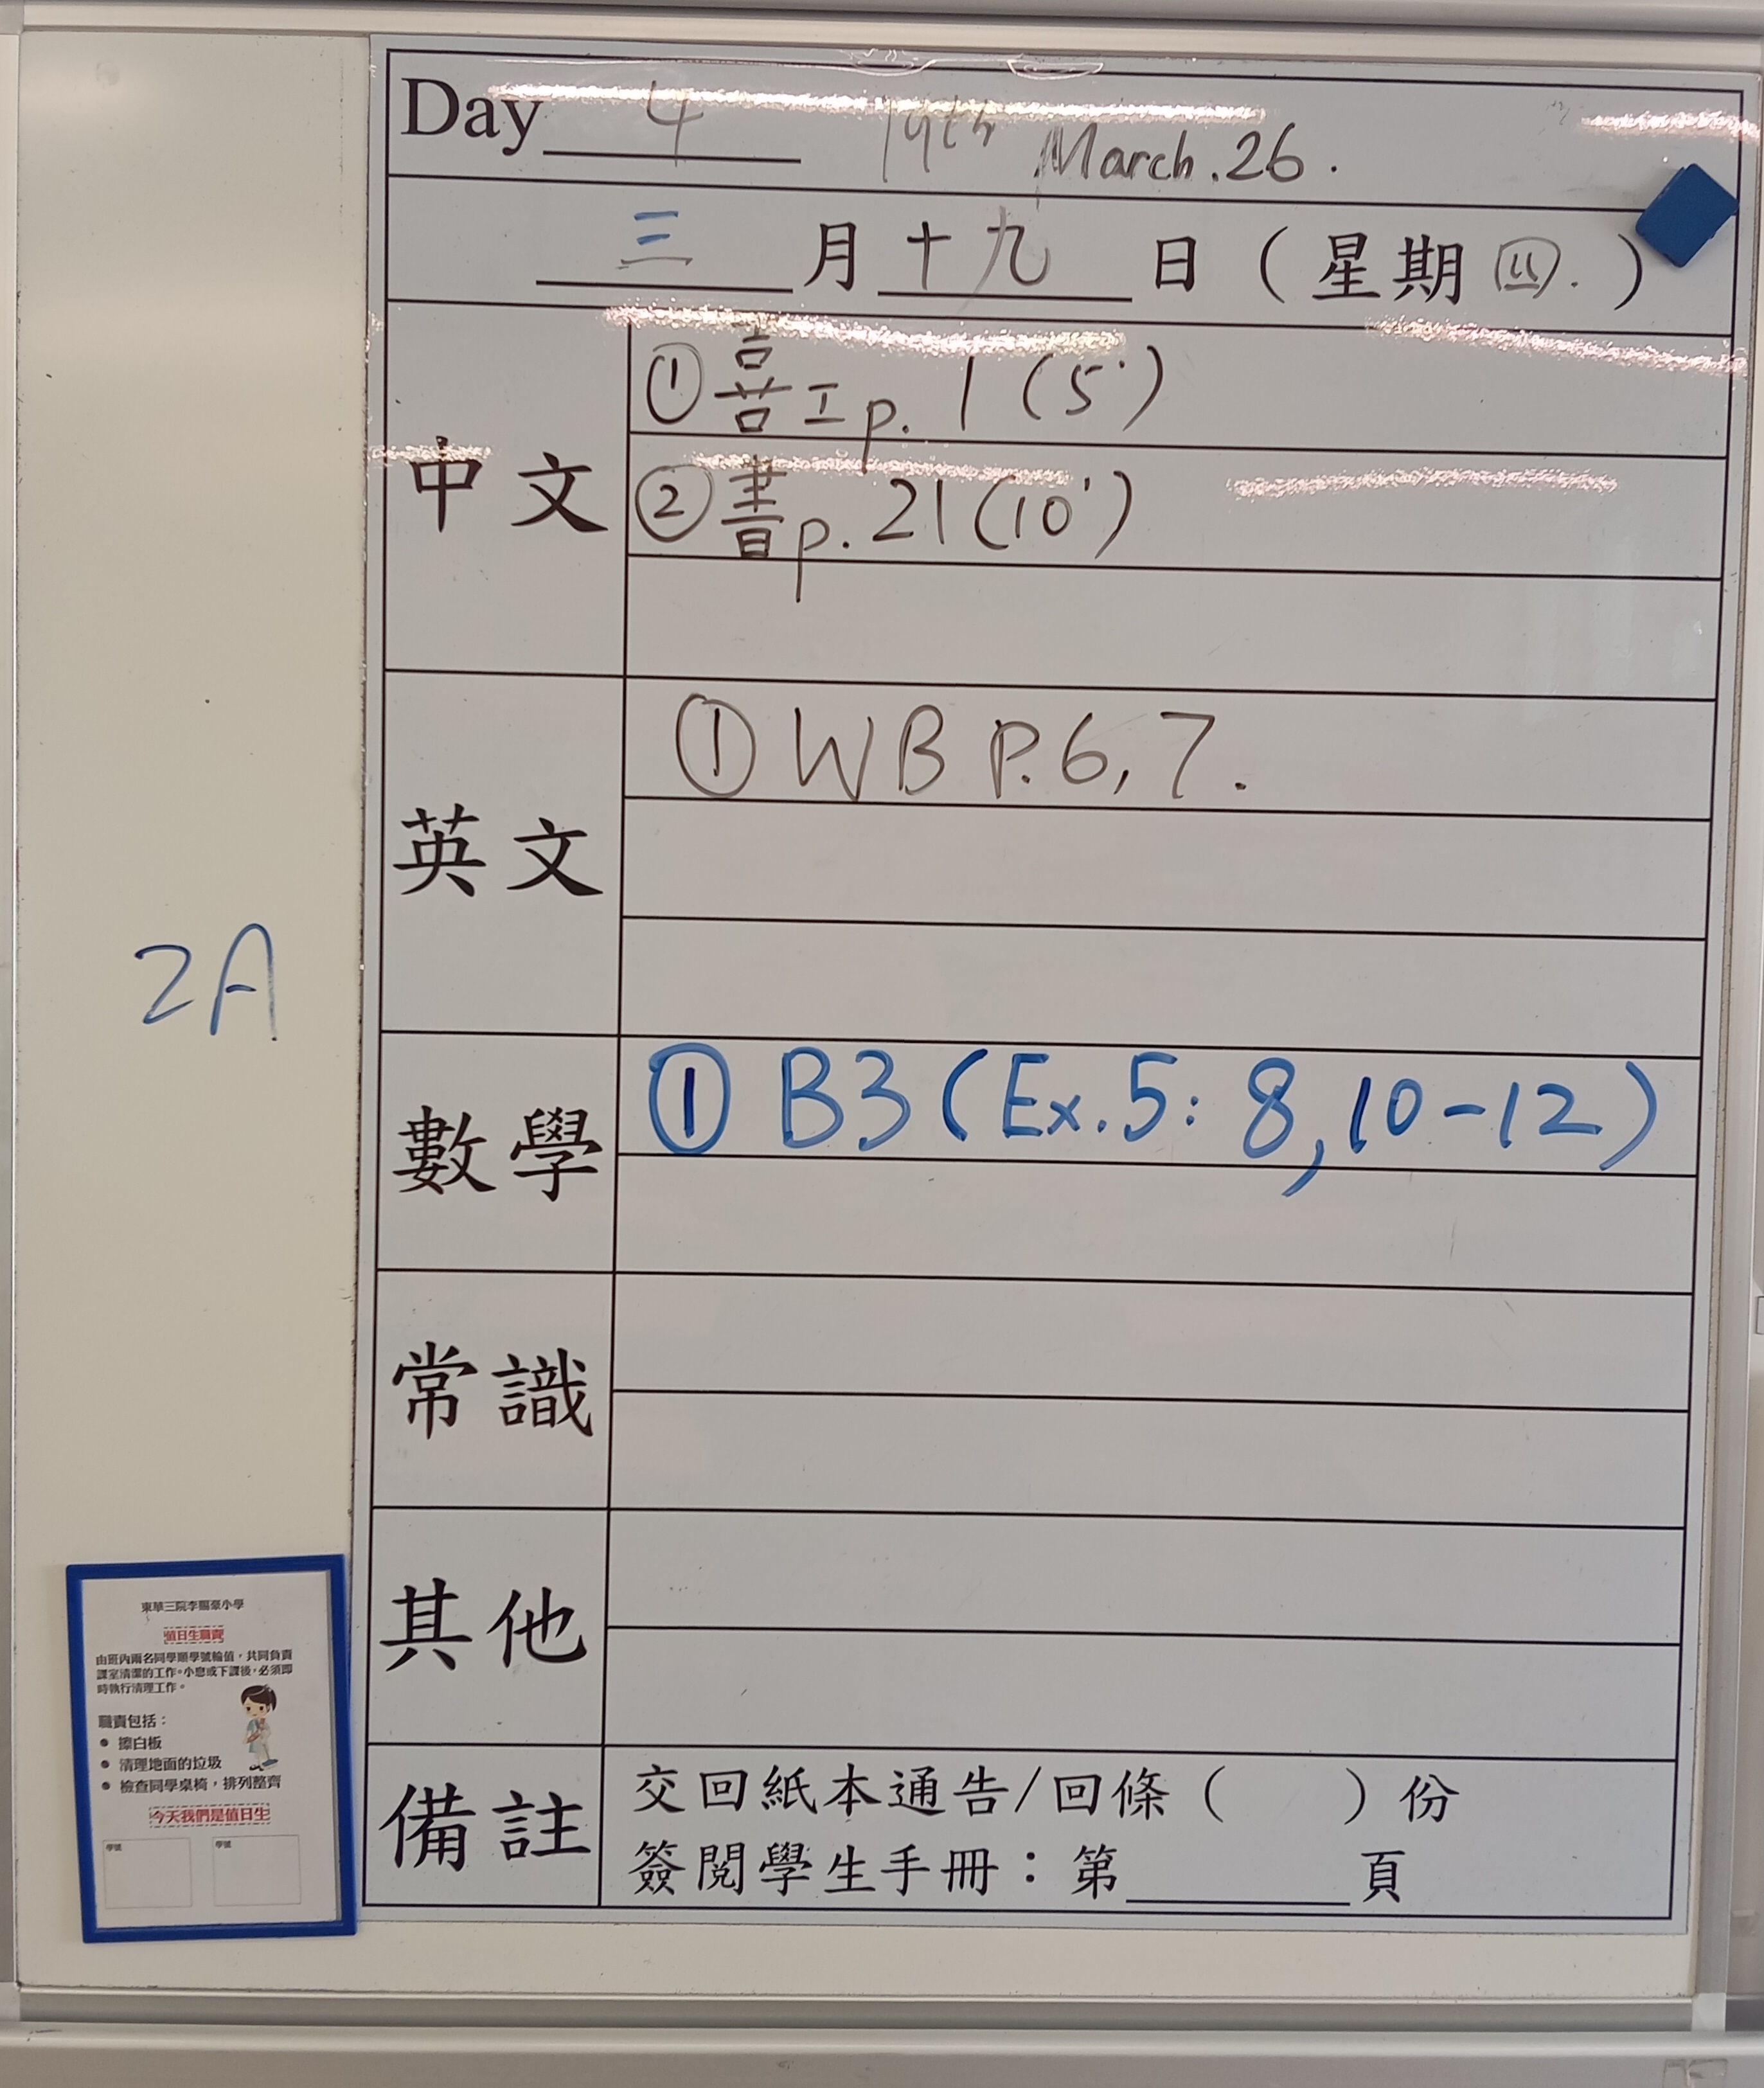 Day 4 19th March.26.
三 月 十九 日 ( 星期 四. )
中文
① 喜工 p. 1 (5')
② 書 p. 21 (10')
英文
① WB P.6, 7.
2A
數學
① B3 (Ex.5: 8, 10-12)
常識
其他
備註
交回紙本通告/回條 ( ) 份
簽閱學生手冊：第 頁
東華三院李賜豪小學
值日生職責
由班內兩名同學順學號輪值，共同負責
課室清潔的工作。小息或下課後，必須即
時執行清理工作。
職責包括：
● 擦白板
● 清理地面的垃圾
● 檢查同學桌椅，排列整齊
今天我們是值日生
學號 學號